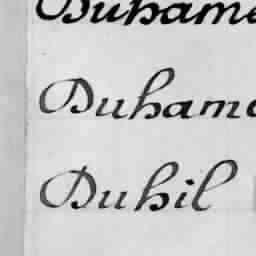 Duhame
Duhame
Duhil